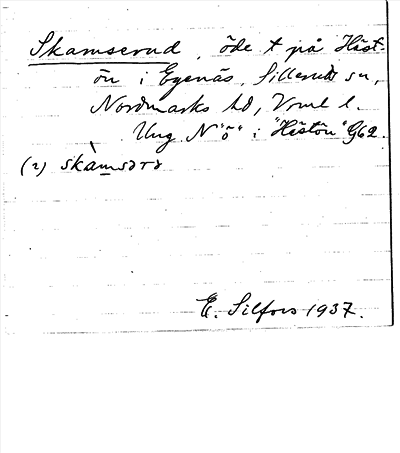 Skamserud, öde t på Häst-
ön i Egenäs, Sillerud sn,
Nordmarks hd, Vrml l.
Ung. N "ö" i "Hästön" G62.
(2) skàmsərə
E. Silfors 1937.